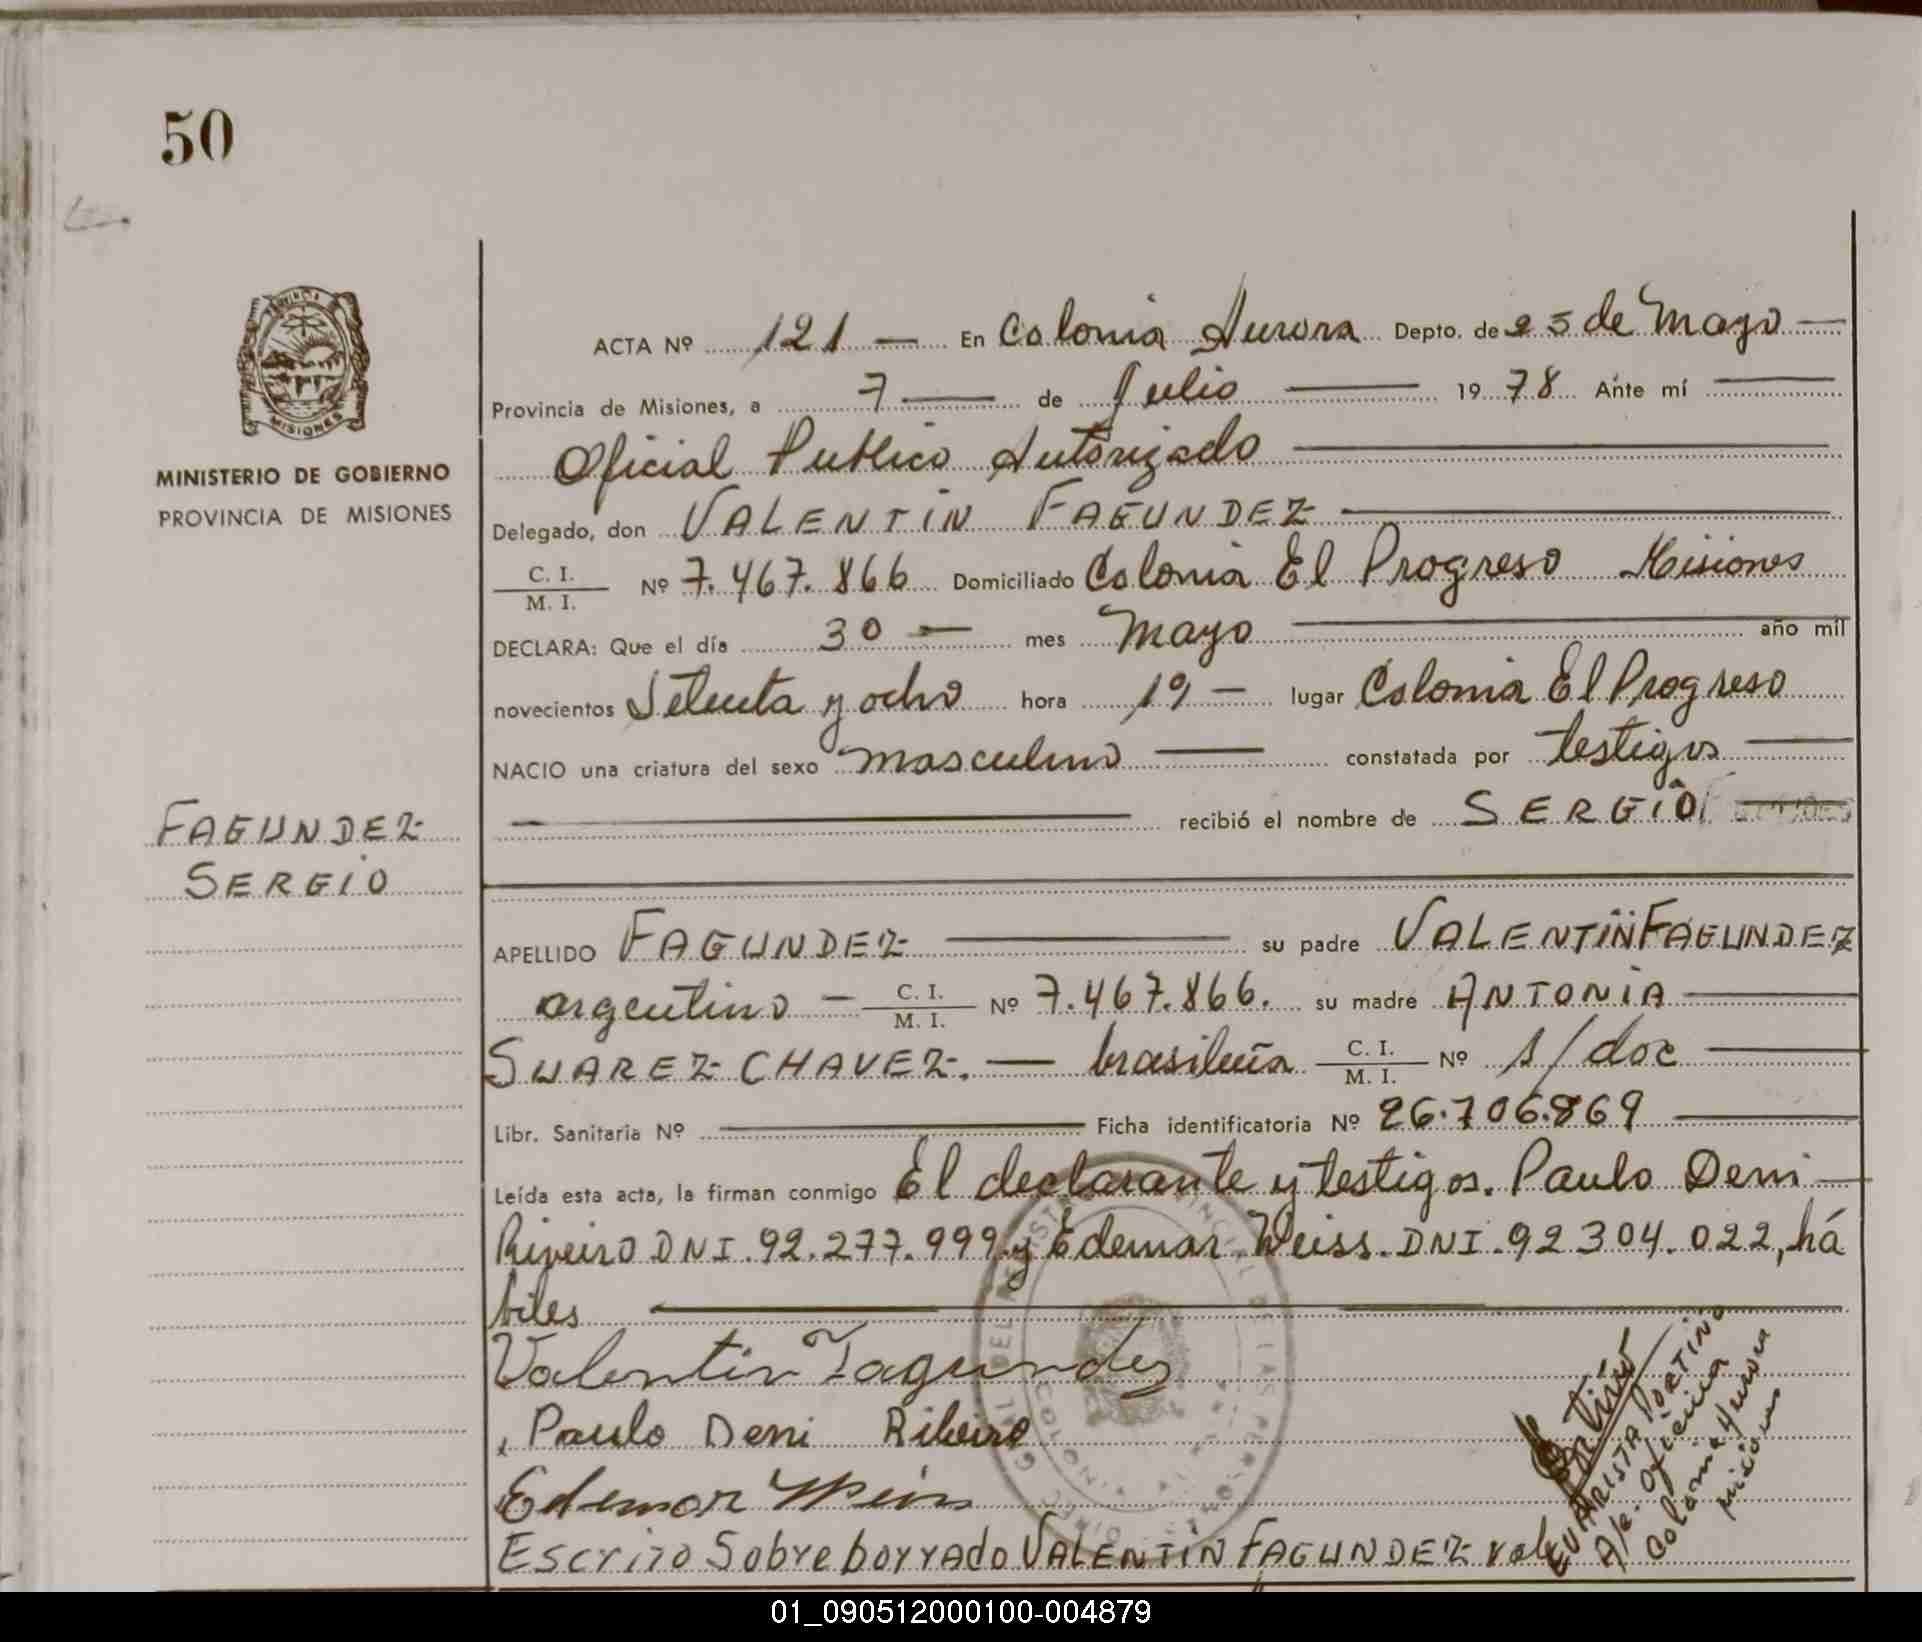 50
PROVINCIA
MISIONES
MINISTERIO DE GOBIERNO
PROVINCIA DE MISIONES
ACTA Nº 121 — En Colonia Aurora Depto. de 25 de Mayo —
Provincia de Misiones, a 7 — de Julio — 1978 Ante mí —
Oficial Publico Autorizado —
Delegado, don VALENTIN FAGUNDEZ —
C. I.
M. I.
Nº 7.467.866 Domiciliado Colonia El Progreso Misiones
DECLARA: Que el día 30 — mes Mayo — año mil
novecientos Setenta y ocho hora 19 — lugar Colonia El Progreso
NACIO una criatura del sexo masculino — constatada por testigos —
— recibió el nombre de SERGIO
FAGUNDEZ
SERGIO
APELLIDO FAGUNDEZ — su padre VALENTIN FAGUNDEZ
argentino — C. I. M. I. Nº 7.467.866. su madre ANTONIA —
SUAREZ CHAVEZ. — brasileña C. I. M. I. Nº s/doc —
Libr. Sanitaria Nº — Ficha identificatoria Nº 26.706.869 —
Leída esta acta, la firman conmigo El declarante y testigos. Paulo Deni —
Ribeiro DNI. 92.277.999 y Edemar Weiss. DNI. 92 304.022, há
biles —
Valentin Fagundez
Paulo Deni Ribeiro
Edemar Weiss
Escrito Sobre borrado VALENTIN FAGUNDEZ vale
EVARISTA PORTINO
Colonia Aurora
Misiones
01_090512000100-004879